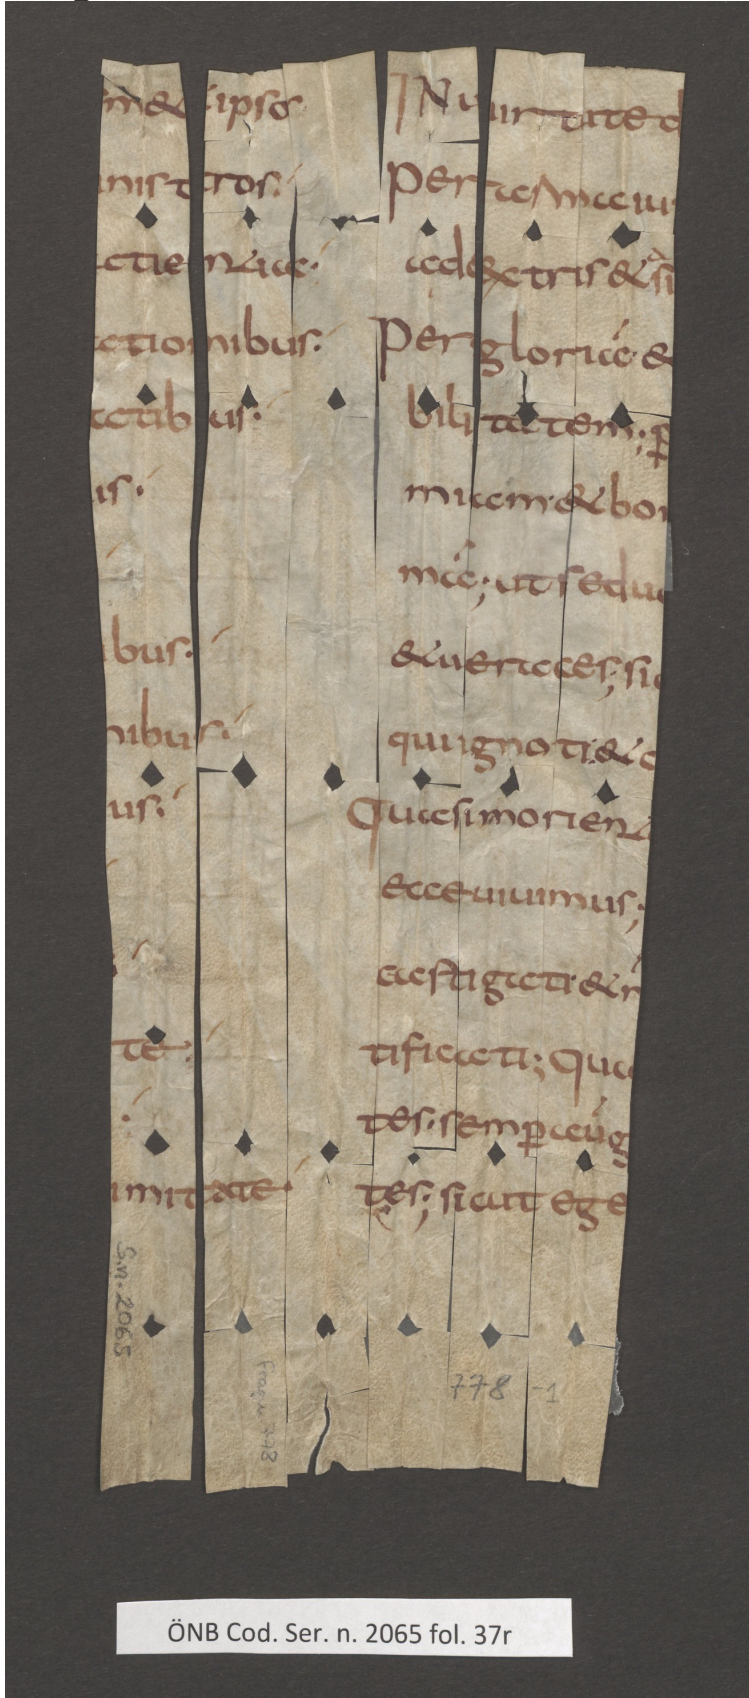 m & ipsos
nistros:
atientia:
ationibus:
atibus:
is:
ibus:
nibus:
us:
te:
imitate
IN uirtute d
Per arma iu
a dextris & si
Per gloriā &
bilitatem; ꝑ
miam & bon
mā; ut seduc
& ueraces; sic
qui ignoti & c
Quasi morient
ecce uiuimus;
castigati & n
tificati; Qua
tes. semꝑ aū g
tes; sicut ege
S.n. 2065
Fragm 778
778 -1
ÖNB Cod. Ser. n. 2065 fol. 37r